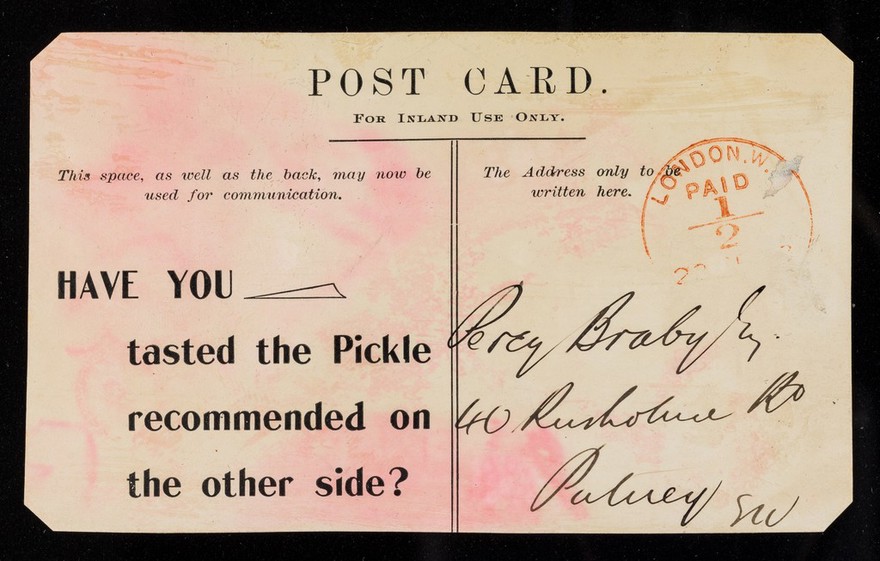 POST CARD.
FOR INLAND USE ONLY.
This space, as well as the back, may now be
used for communication.
The Address only to be
written here.
LONDON.W.
PAID
1
2
HAVE YOU
tasted the Pickle
recommended on
the other side?
Percy Braby Esq.
40 Rusholme Rd
Putney SW